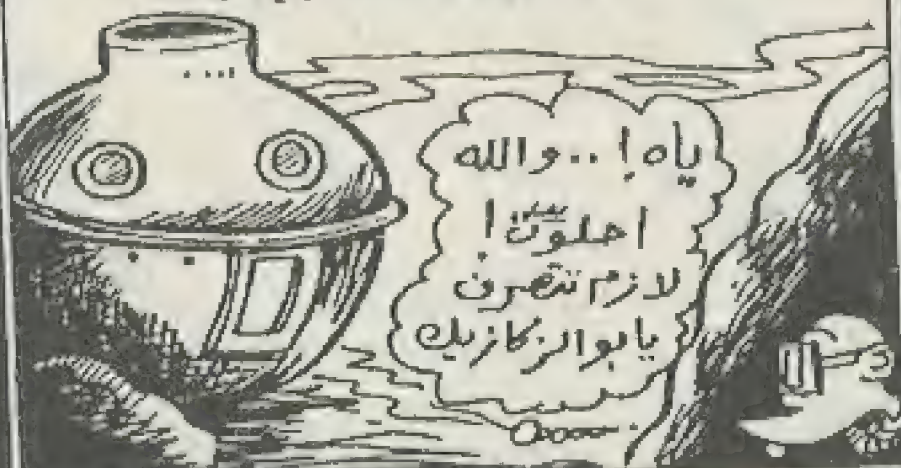 ياه! ..والله
احلوت!
لازم تتصرف
يابو الزكازيك